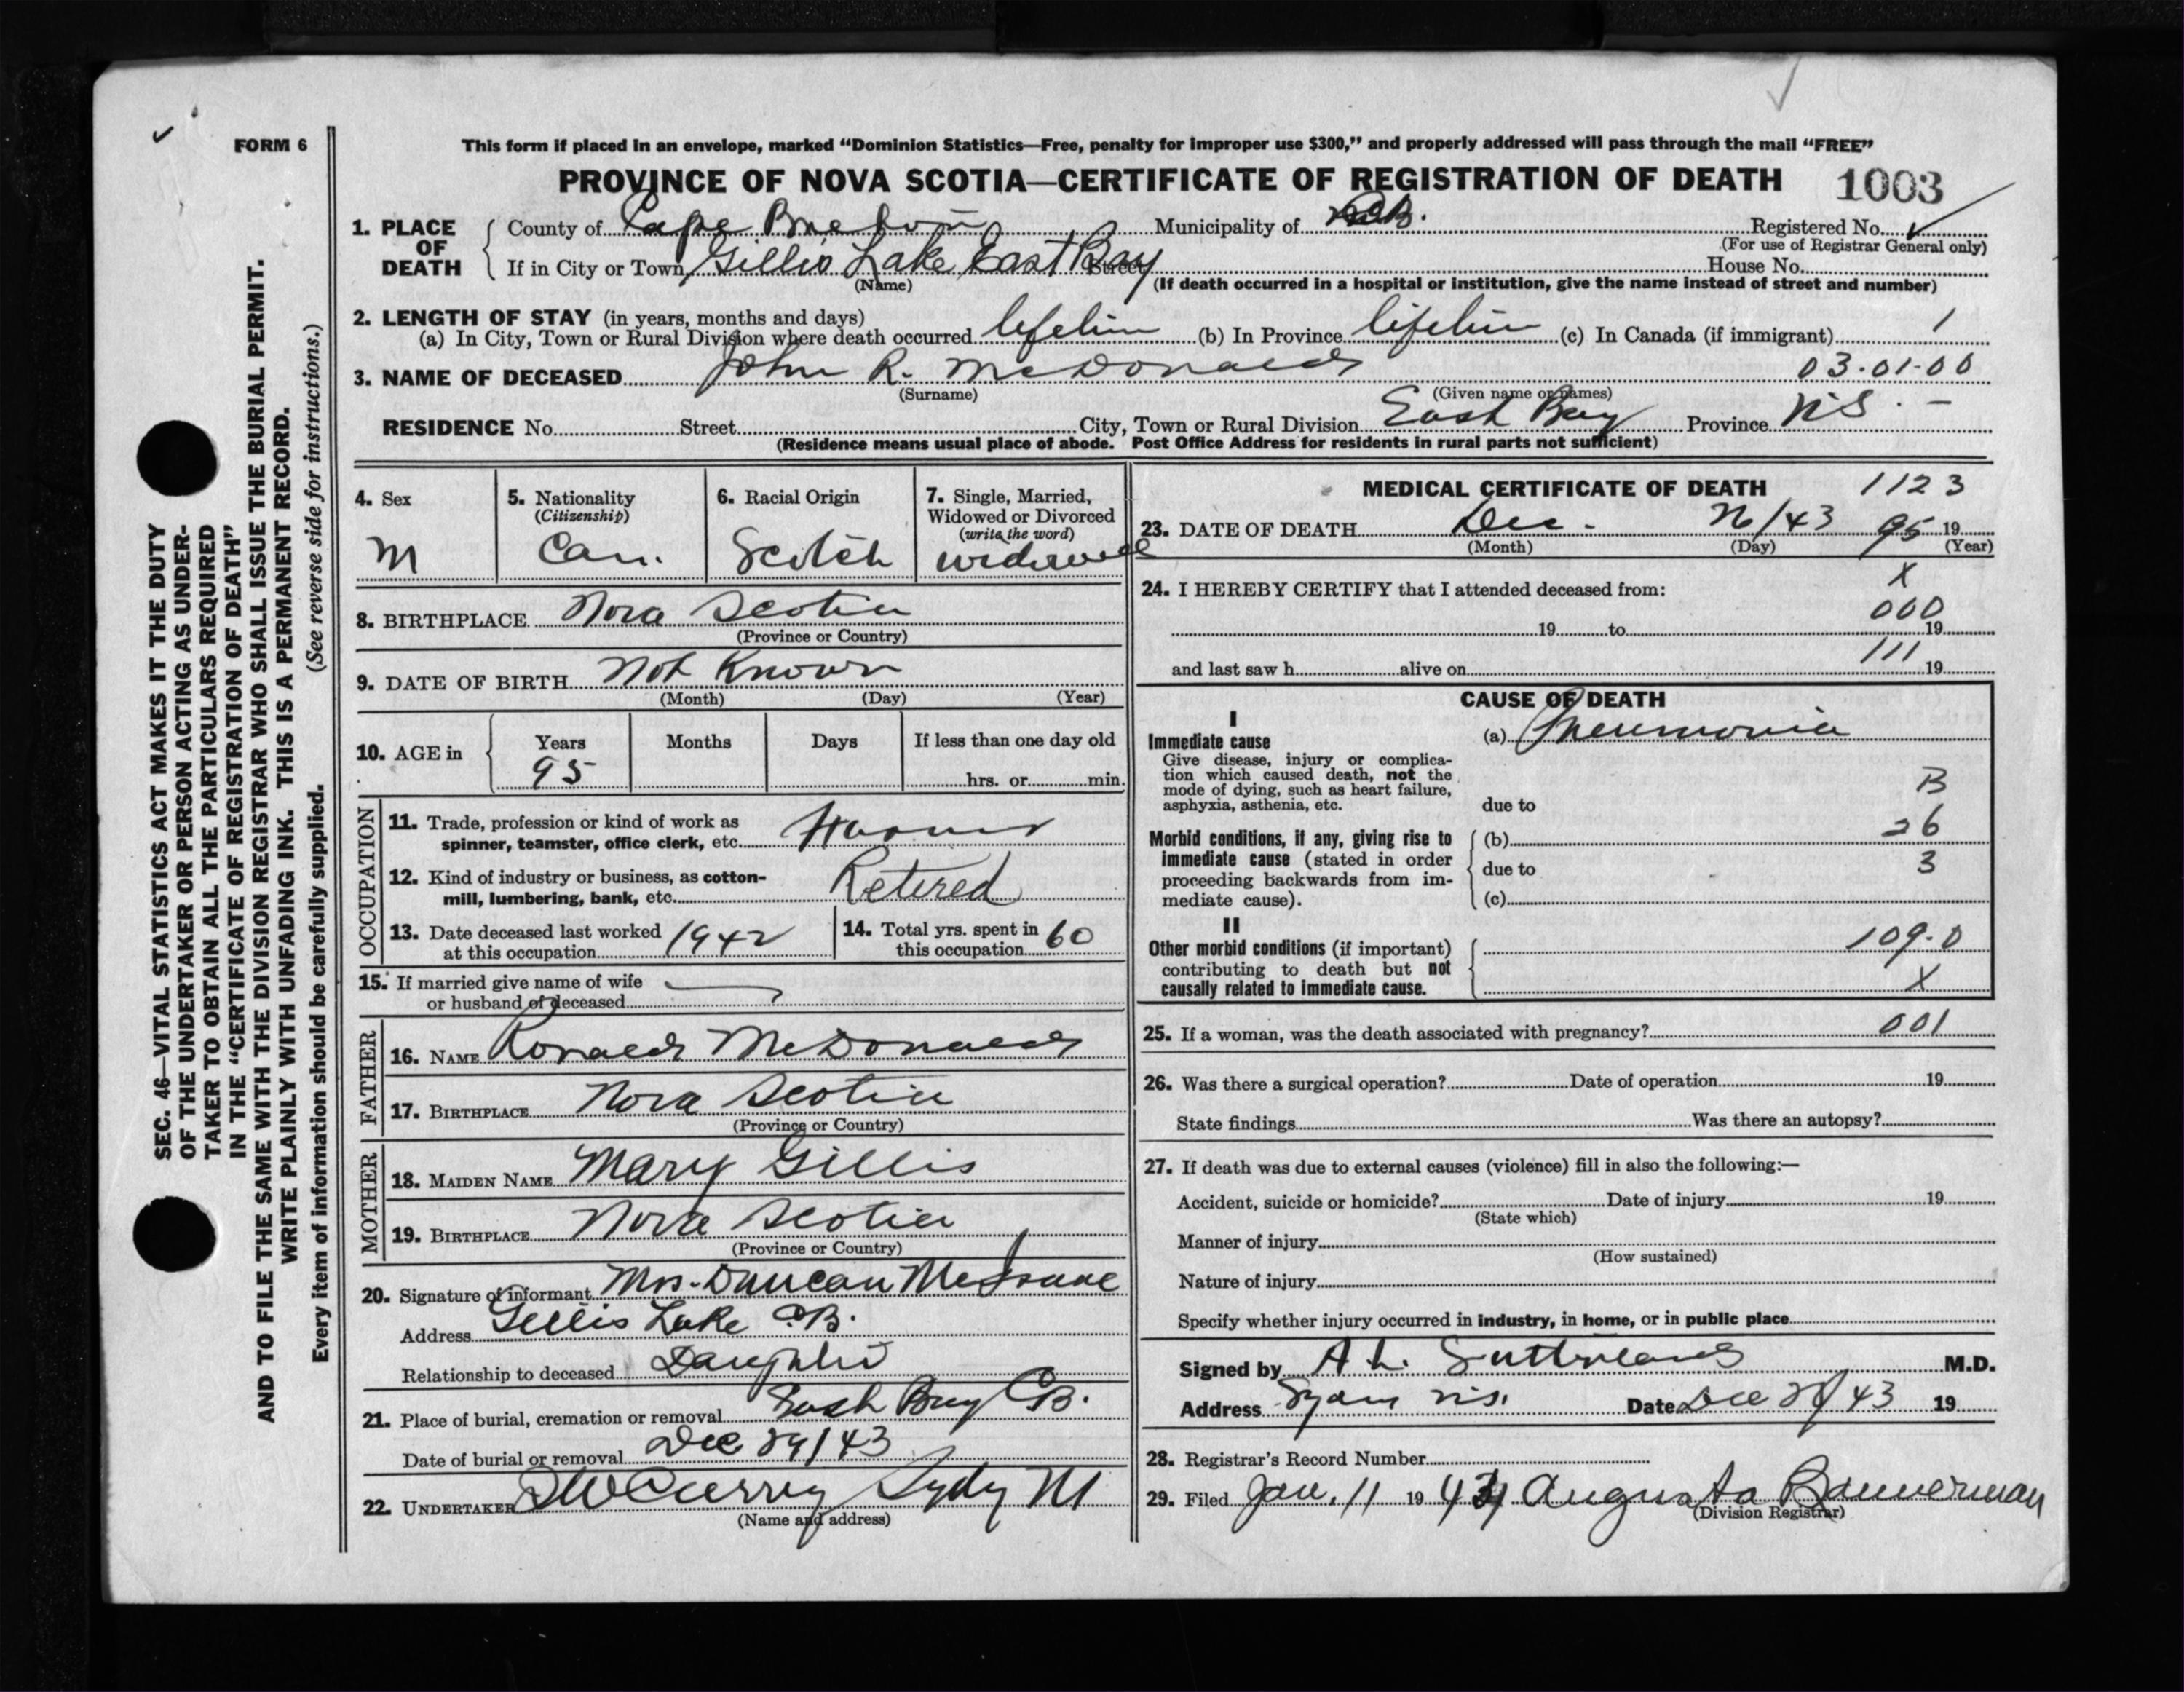 FORM 6
This form if placed in an envelope, marked “Dominion Statistics—Free, penalty for improper use $300,” and properly addressed will pass through the mail “FREE”
PROVINCE OF NOVA SCOTIA—CERTIFICATE OF REGISTRATION OF DEATH 1003
1. PLACE OF DEATH
County of Cape Breton Municipality of C.B. Registered No.
(For use of Registrar General only)
If in City or Town Gillis Lake East Bay Street House No.
(Name) (If death occurred in a hospital or institution, give the name instead of street and number)
2. LENGTH OF STAY (in years, months and days)
(a) In City, Town or Rural Division where death occurred lifetim (b) In Province lifetim (c) In Canada (if immigrant) 1
3. NAME OF DECEASED John R. McDonald 03.01-00
(Surname) (Given name or names)
RESIDENCE No. Street City, Town or Rural Division East Bay Province N.S. -
(Residence means usual place of abode. Post Office Address for residents in rural parts not sufficient)
4. Sex
M
5. Nationality
(Citizenship)
Can.
6. Racial Origin
Scotch
7. Single, Married,
Widowed or Divorced
(write the word)
widowed
8. BIRTHPLACE Nova Scotia
(Province or Country)
9. DATE OF BIRTH Not Known
(Month) (Day) (Year)
10. AGE in Years Months Days If less than one day old
95 hrs. or min.
OCCUPATION
11. Trade, profession or kind of work as
spinner, teamster, office clerk, etc.
12. Kind of industry or business, as cotton-
mill, lumbering, bank, etc. Retired
13. Date deceased last worked
at this occupation 1942
14. Total yrs. spent in
this occupation 60
15. If married give name of wife
or husband of deceased
FATHER
16. NAME Ronald McDonald
17. BIRTHPLACE Nova Scotia
(Province or Country)
MOTHER
18. MAIDEN NAME Mary Gillis
19. BIRTHPLACE Nova Scotia
(Province or Country)
20. Signature of informant Mrs. Duncan McIsaac
Address Gillis Lake C.B.
Relationship to deceased Daughter
21. Place of burial, cremation or removal East Bay C.B.
Date of burial or removal Dec 29/43
22. UNDERTAKER Curry
(Name and address)
MEDICAL CERTIFICATE OF DEATH 1123
23. DATE OF DEATH Dec. 26/43 95 19
(Month) (Day) (Year)
24. I HEREBY CERTIFY that I attended deceased from: X
000
19 to 19
111
and last saw h alive on 19
CAUSE OF DEATH
I
Immediate cause
Give disease, injury or complica-
tion which caused death, not the
mode of dying, such as heart failure,
asphyxia, asthenia, etc.
(a) Pneumonia
B
due to
Morbid conditions, if any, giving rise to
immediate cause (stated in order
proceeding backwards from im-
mediate cause).
(b) 26
due to 3
(c)
II
Other morbid conditions (if important)
contributing to death but not
causally related to immediate cause.
109-0
X
25. If a woman, was the death associated with pregnancy? 001
26. Was there a surgical operation? Date of operation 19
State findings Was there an autopsy?
27. If death was due to external causes (violence) fill in also the following:—
Accident, suicide or homicide? Date of injury 19
(State which)
Manner of injury
(How sustained)
Nature of injury
Specify whether injury occurred in industry, in home, or in public place
Signed by A.L. Sutherland M.D.
Address N.S. Date Dec 43 19
28. Registrar's Record Number
29. Filed Jan. 11 19 4 Augusta Bannerman
(Division Registrar)
SEC. 46—VITAL STATISTICS ACT MAKES IT THE DUTY
OF THE UNDERTAKER OR PERSON ACTING AS UNDER-
TAKER TO OBTAIN ALL THE PARTICULARS REQUIRED
IN THE “CERTIFICATE OF REGISTRATION OF DEATH”
AND TO FILE THE SAME WITH THE DIVISION REGISTRAR WHO SHALL ISSUE THE BURIAL PERMIT.
WRITE PLAINLY WITH UNFADING INK. THIS IS A PERMANENT RECORD.
Every item of information should be carefully supplied. (See reverse side for instructions.)